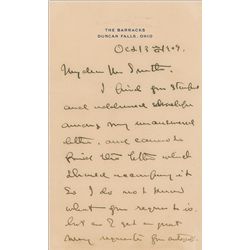 THE BARRACKS
DUNCAN FALLS, OHIO
Oct 13 1909.
My dear Mr Smith.
I find your stamped
and addressed envelope
among my unanswered
letter, and cannot
find the letter which
should accompany it
So I do not know
what your request is,
but as I get a great
many requests for